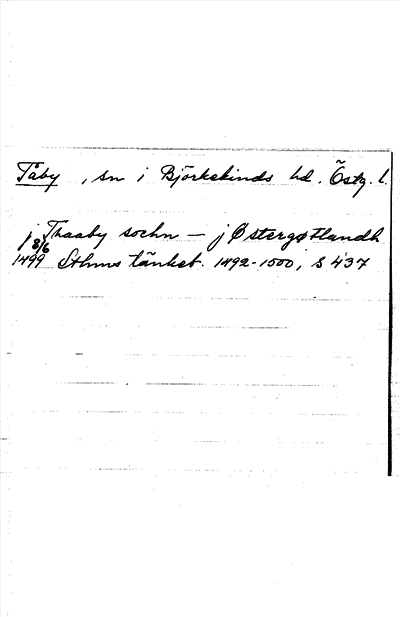 Tåby, sn i Björkekinds hd. Östg. l.
j Thaaby sochn — j Østergøtlandh
8/6
1499 Sthms tänkeb. 1492-1500, s 437